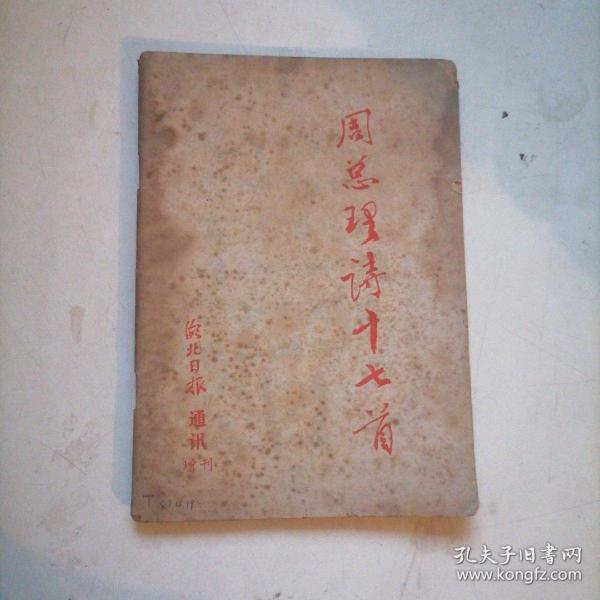 周总理诗十七首
湖北日报通讯
增刊
孔夫子旧书网
www.kongfz.com